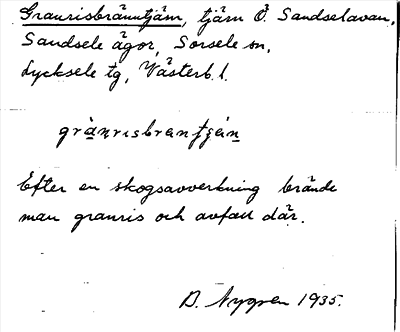 Granrisbränntjärn, tjärn Ö. Sandselavan,
Sandsele ägor, Sorsele sn,
Lycksele tg, Västerb. l.
grànrisbrantjàn
Efter en skogsavverkning brände
man granris och avfall där.
D. Nygren 1935.